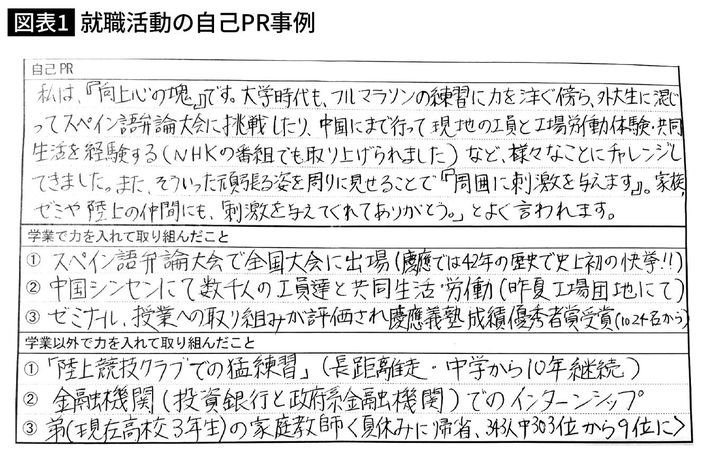 図表1 就職活動の自己PR事例
自己PR
私は、『向上心の塊』です。大学時代も、フルマラソンの練習に力を注ぐ傍ら、外大生に混じ
ってスペイン語弁論大会に挑戦したり、中国にまで行って現地の工員と工場労働体験・共同
生活を経験する(NHKの番組でも取り上げられました)など、様々なことにチャレンジし
てきました。また、そういった頑張る姿を周りに見せることで『周囲に刺激を与えます』。家族、
ゼミや陸上の仲間にも、「刺激を与えてくれてありがとう。」とよく言われます。
学業で力を入れて取り組んだこと
① スペイン語弁論大会で全国大会に出場(慶應では42年の歴史で史上初の快挙!!)
② 中国シンセンにて数千人の工員達と共同生活・労働(昨夏工場団地にて)
③ ゼミナル、授業への取り組みが評価され慶應義塾成績優秀者賞受賞(1024名から)
学業以外で力を入れて取り組んだこと
①「陸上競技クラブでの猛練習」(長距離走・中学から10年継続)
② 金融機関(投資銀行と政府系金融機関)でのインターンシップ
③ 弟(現在高校3年生)の家庭教師<夏休みに帰省、343人中303位から9位に>